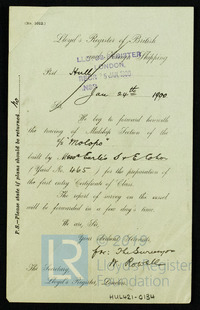 Lloyd's Register of British
Shipping
LLOYD'S REGISTER
LONDON.
Port Hull
Jan 24th 1900
Sir,
We beg to forward herewith
the tracing of Midship Section of the
"Molopo"
built by Mess Earle's S & E Co Ld
(Yard No. 445) for the preparation of
the first entry Certificate of Class.
The report of survey on the vessel
will be forwarded in a few day's time.
We are, Sir,
Your obedient Servants,
for The Surveyors
The Secretary,
Lloyd's Register, London.
P.S.-Please state if plans should be returned. No
Lloyd's Register
Foundation
HUL421-0134